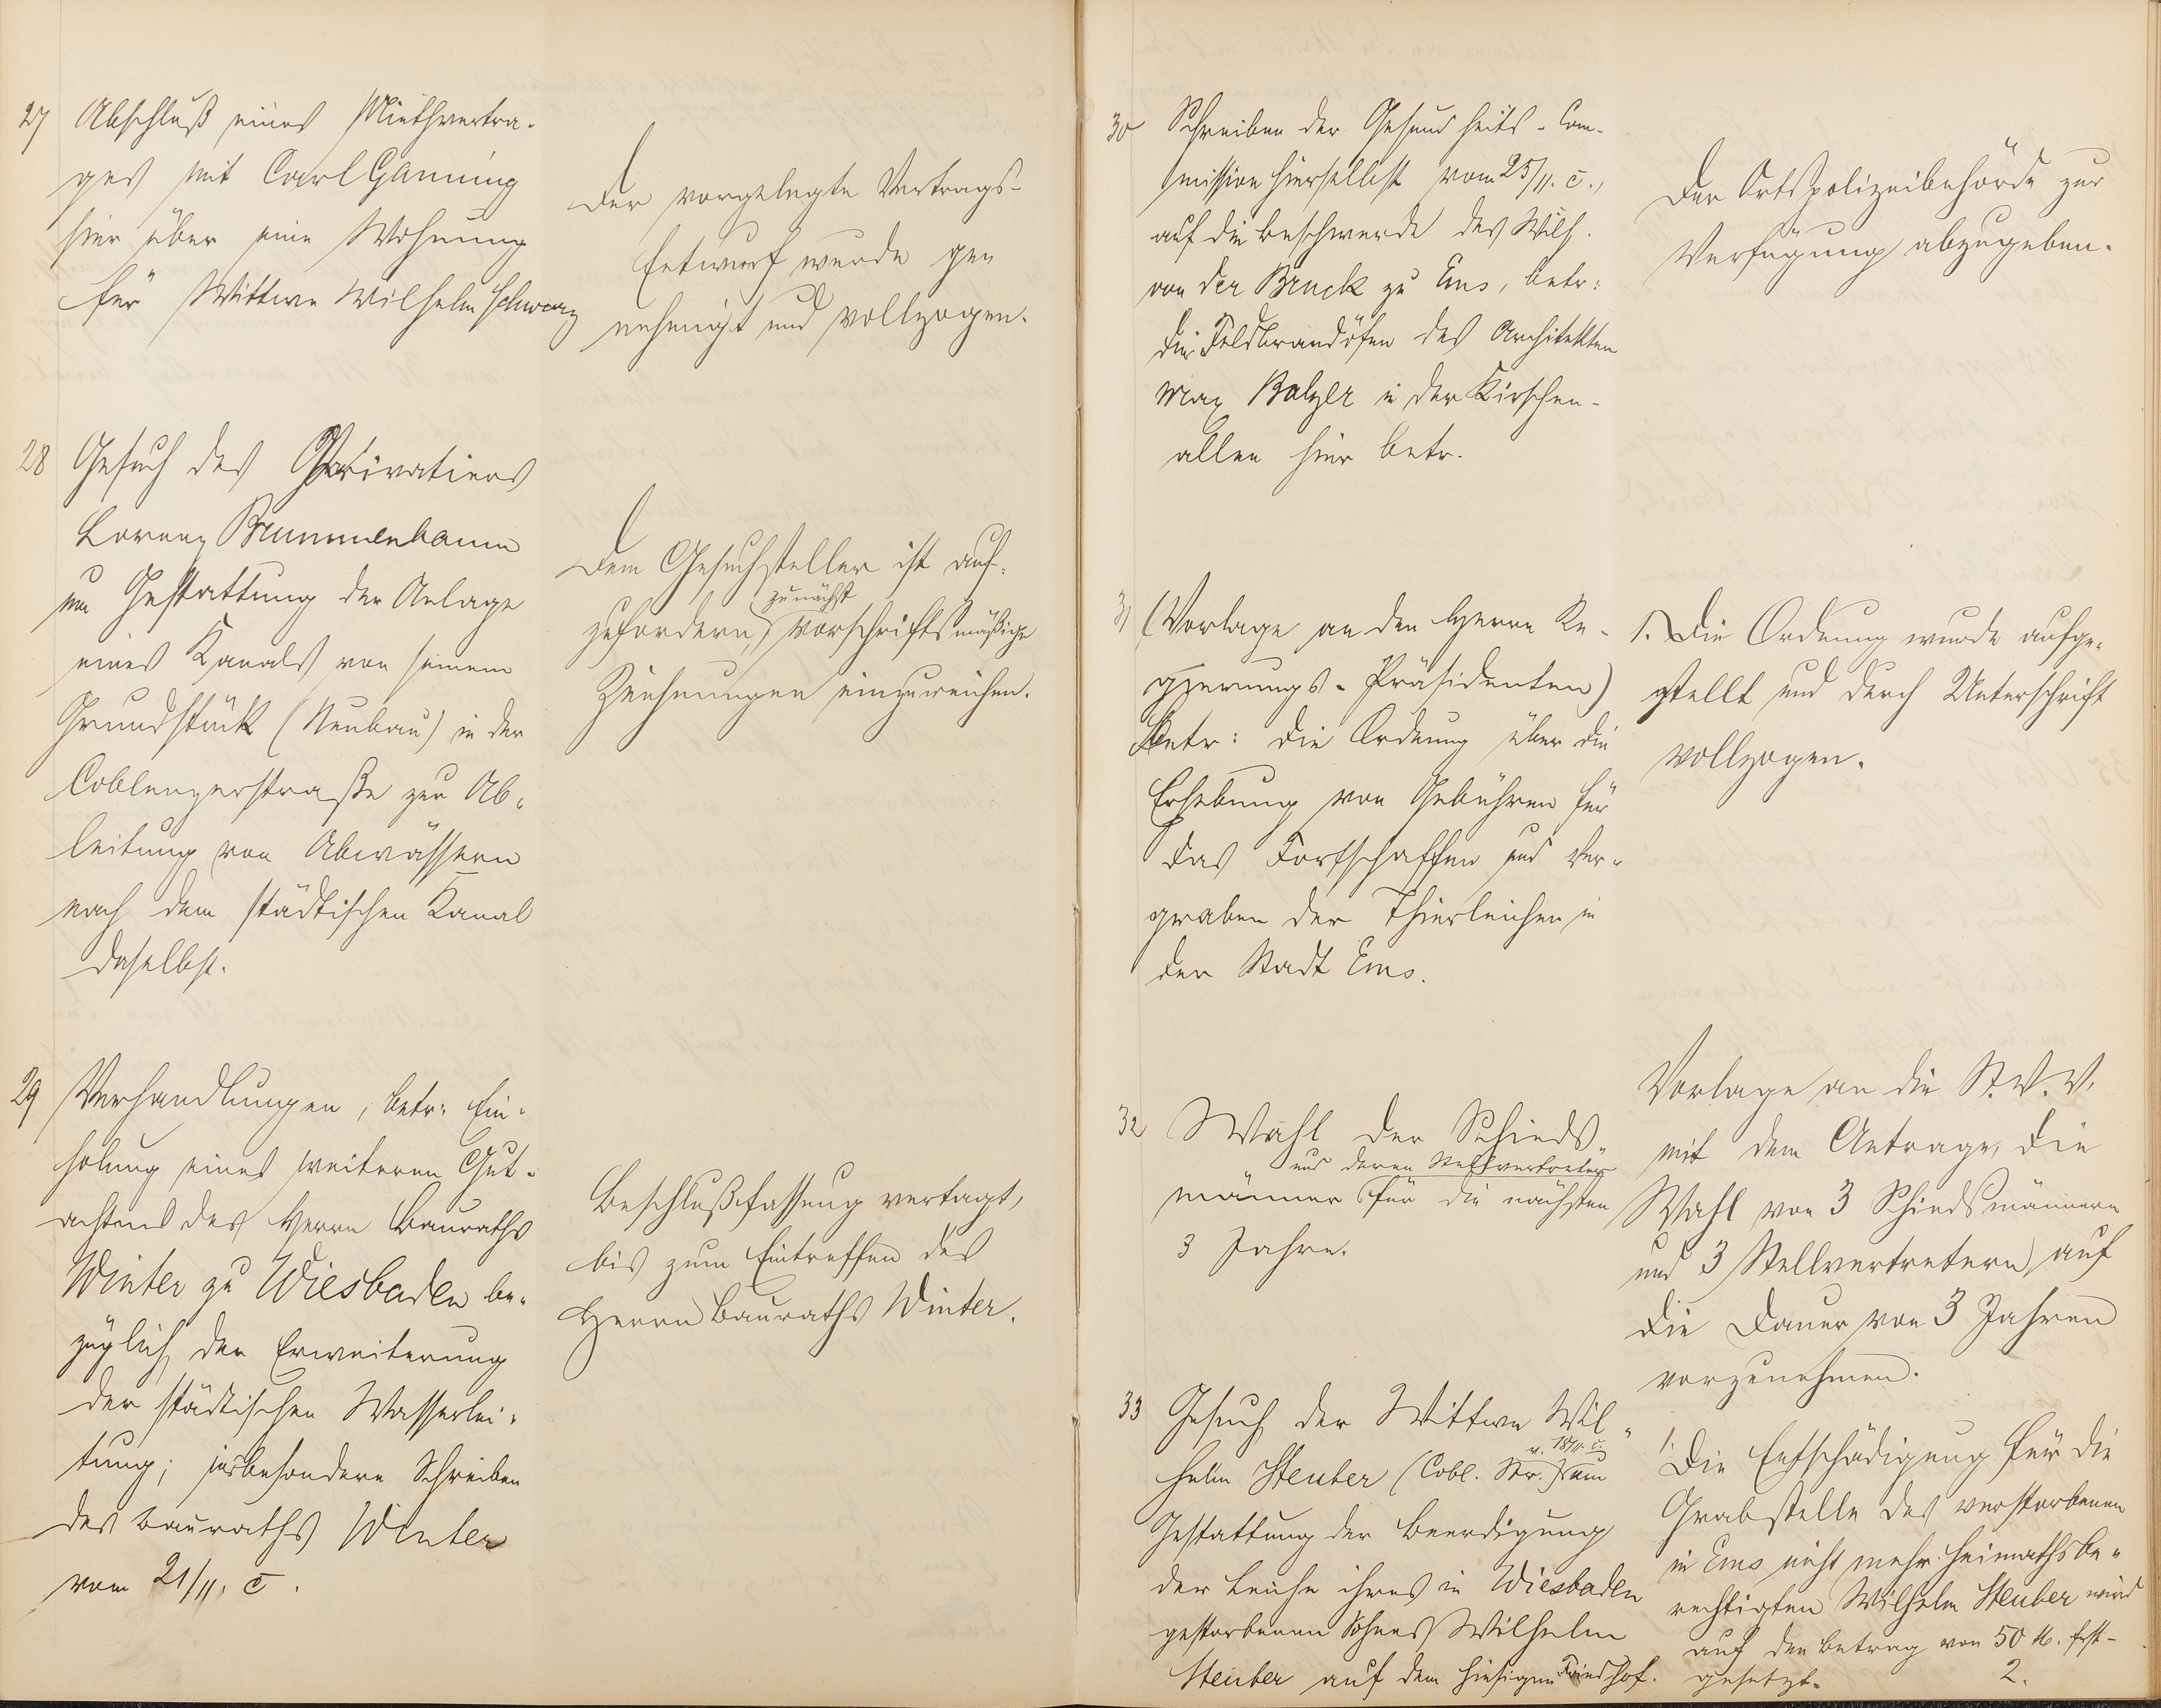 27 Abschluß eines Miethvertra-
ges mit Carl Ganning
hier über eine Wohnung
für Wittwe Wilhelm Schwarz
Der vorgelegte Vertrags-
Entwurf wurde ge-
nehmigt und vollzogen.
28 Gesuch des Privatiers
Lorenz Brummenbaum
um Gestattung der Anlage
eines Kanals von seinem
Grundstück (Neubau) in der
Coblenzerstraße zur Ab-
leitung von Abwässern
nach dem städtischen Kanal
daselbst.
Dem Gesuchsteller ist auf-
zunächst
zufordern, vorschriftsmäßige
Zeichnungen einzureichen.
29 Verhandlungen, betr: Ein-
holung eines weiteren Gut-
achtens des Herrn Bauraths
Winter zu Wiesbaden be-
züglich der Erweiterung
der städtischen Wasserlei-
tung; insbesondere Schreiben
des Bauraths Winter
vom 21/11. c.
Beschlußfassung vertagt,
bis zum Eintreffen des
Herrn Bauraths Winter.
30 Schreiben der Gesundheits-Com-
mission hierselbst vom 25/11. c.,
auf die Beschwerde des Wilh.
von der Bruck zu Ems, betr:
die Feldbrandöfen des Architekten
Max Balzer in der Kirschen-
allee hier betr.
Der Ortspolizeibehörde zur
Verfügung abzugeben.
31 (Vorlage an den Herrn Re-
gierungs-Präsidenten)
betr: die Ordnung über die
Erhebung von Gebühren für
das Fortschaffen und Ver-
graben der Thierleichen in
der Stadt Ems.
1. Die Ordnung wurde aufge-
stellt und durch Unterschrift
vollzogen.
32 Wahl der Schieds-
und deren Stellvertreter
männer für die nächsten
3 Jahre.
Vorlage an die St. V. V.
mit dem Antrage, die
Wahl von 3 Schiedsmännern
und 3 Stellvertretern auf
die Dauer von 3 Jahren
vorzunehmen.
33 Gesuch der Wittwe Wil-
v. 18/11. c.
helm Steuber (Cobl. Str.) um
Gestattung der Beerdigung
der Leiche ihres in Wiesbaden
gestorbenen Sohnes Wilhelm
Steuber auf dem hiesigen Friedhof.
1.
Die Entschädigung für die
Grabstelle des verstorbenen
in Ems nicht mehr heimathsbe-
rechtigten Wilhelm Steuber wird
auf den Betrag von 50 M. fest-
gesetzt. 2.